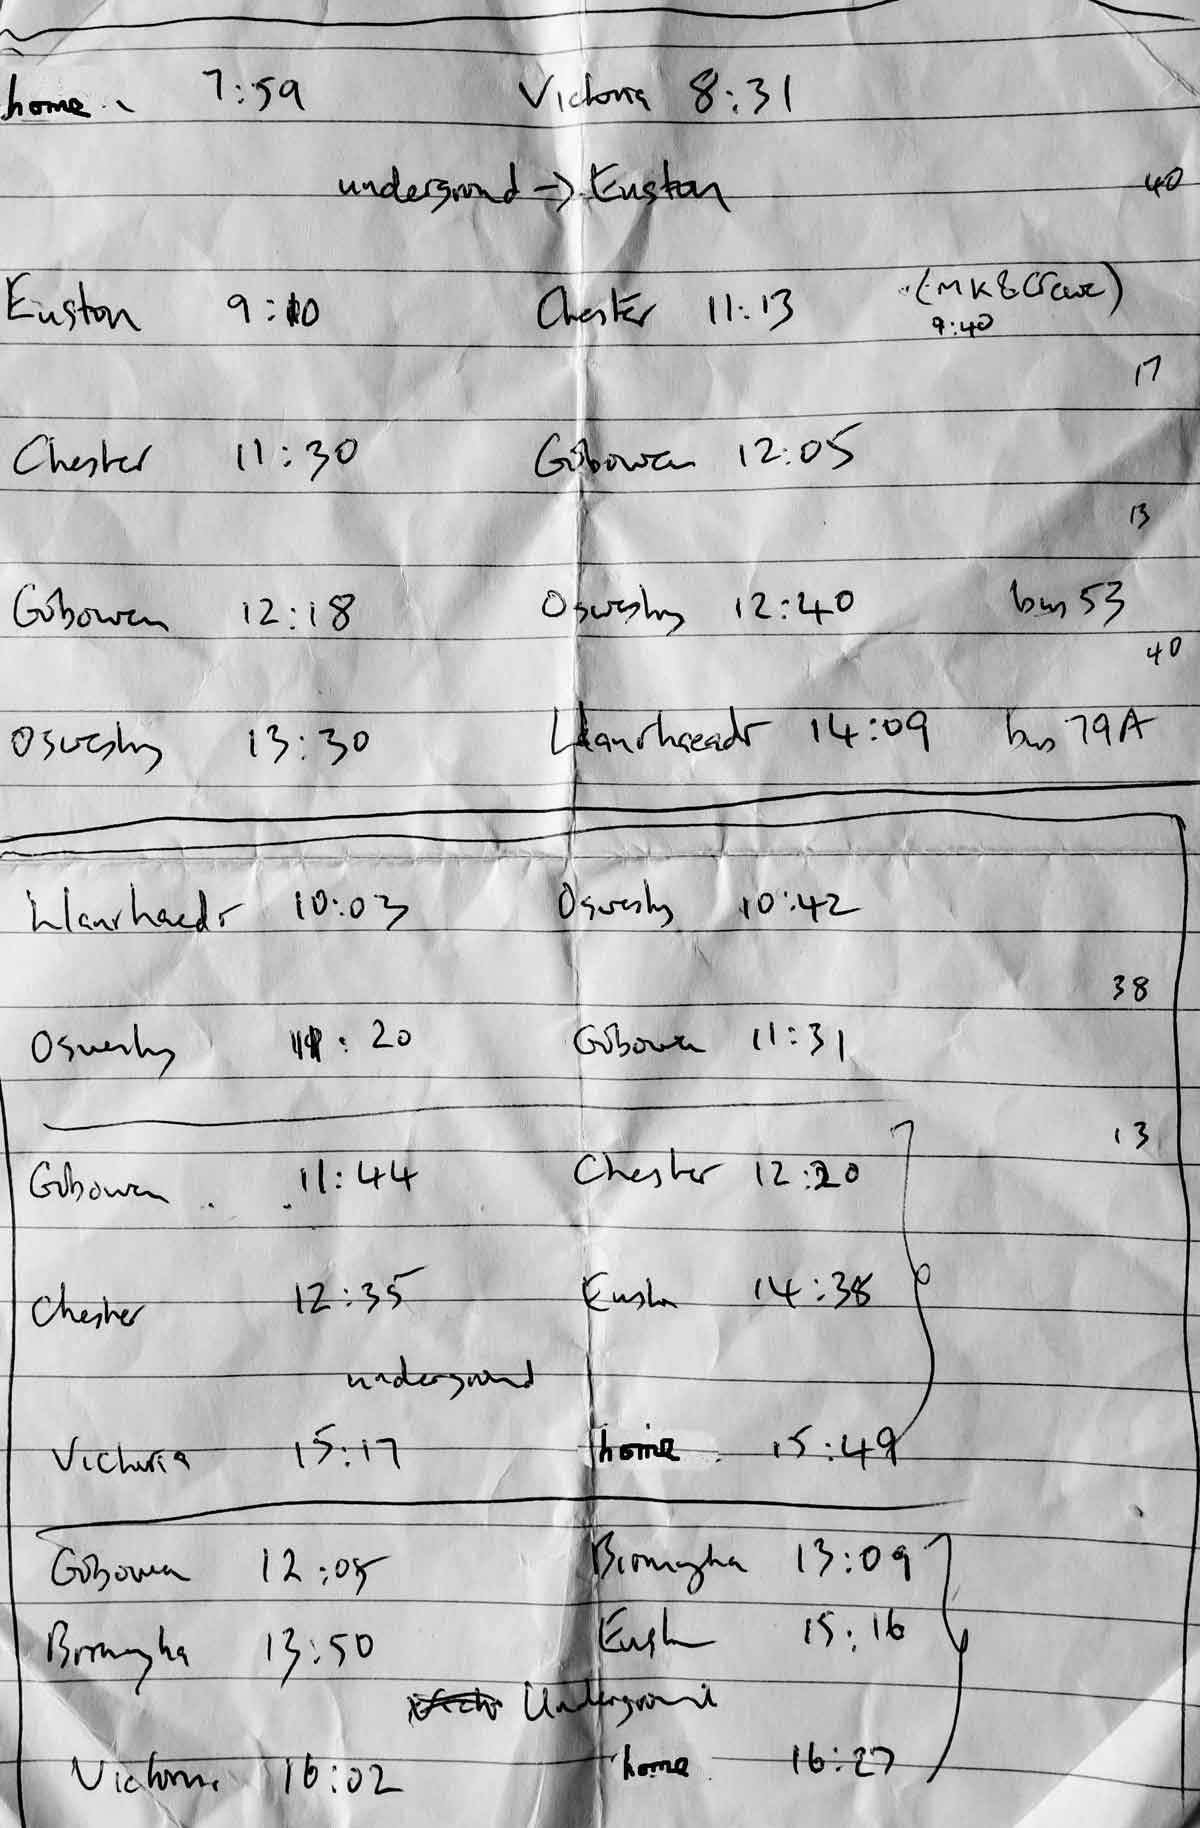 home 7:59 Victoria 8:31
underground -> Euston 40
Euston 9:10 Chester 11:13 (MK & Crewe)
9:40
17
Chester 11:30 Gobowen 12:05
13
Gobowen 12:18 Oswestry 12:40 bus 53
40
Oswestry 13:30 Llanrhaeadr 14:09 bus 79A
Llanrhaedr 10:03 Oswestry 10:42
38
Oswestry 11:20 Gobowen 11:31
13
Gobowen 11:44 Chester 12:20
Chester 12:35 Euston 14:38
underground
Victoria 15:17 home 15:49
Gobowen 12:05 Birmingham 13:09
Birmingham 13:50 Euston 15:16
Underground
Victoria 16:02 home 16:27